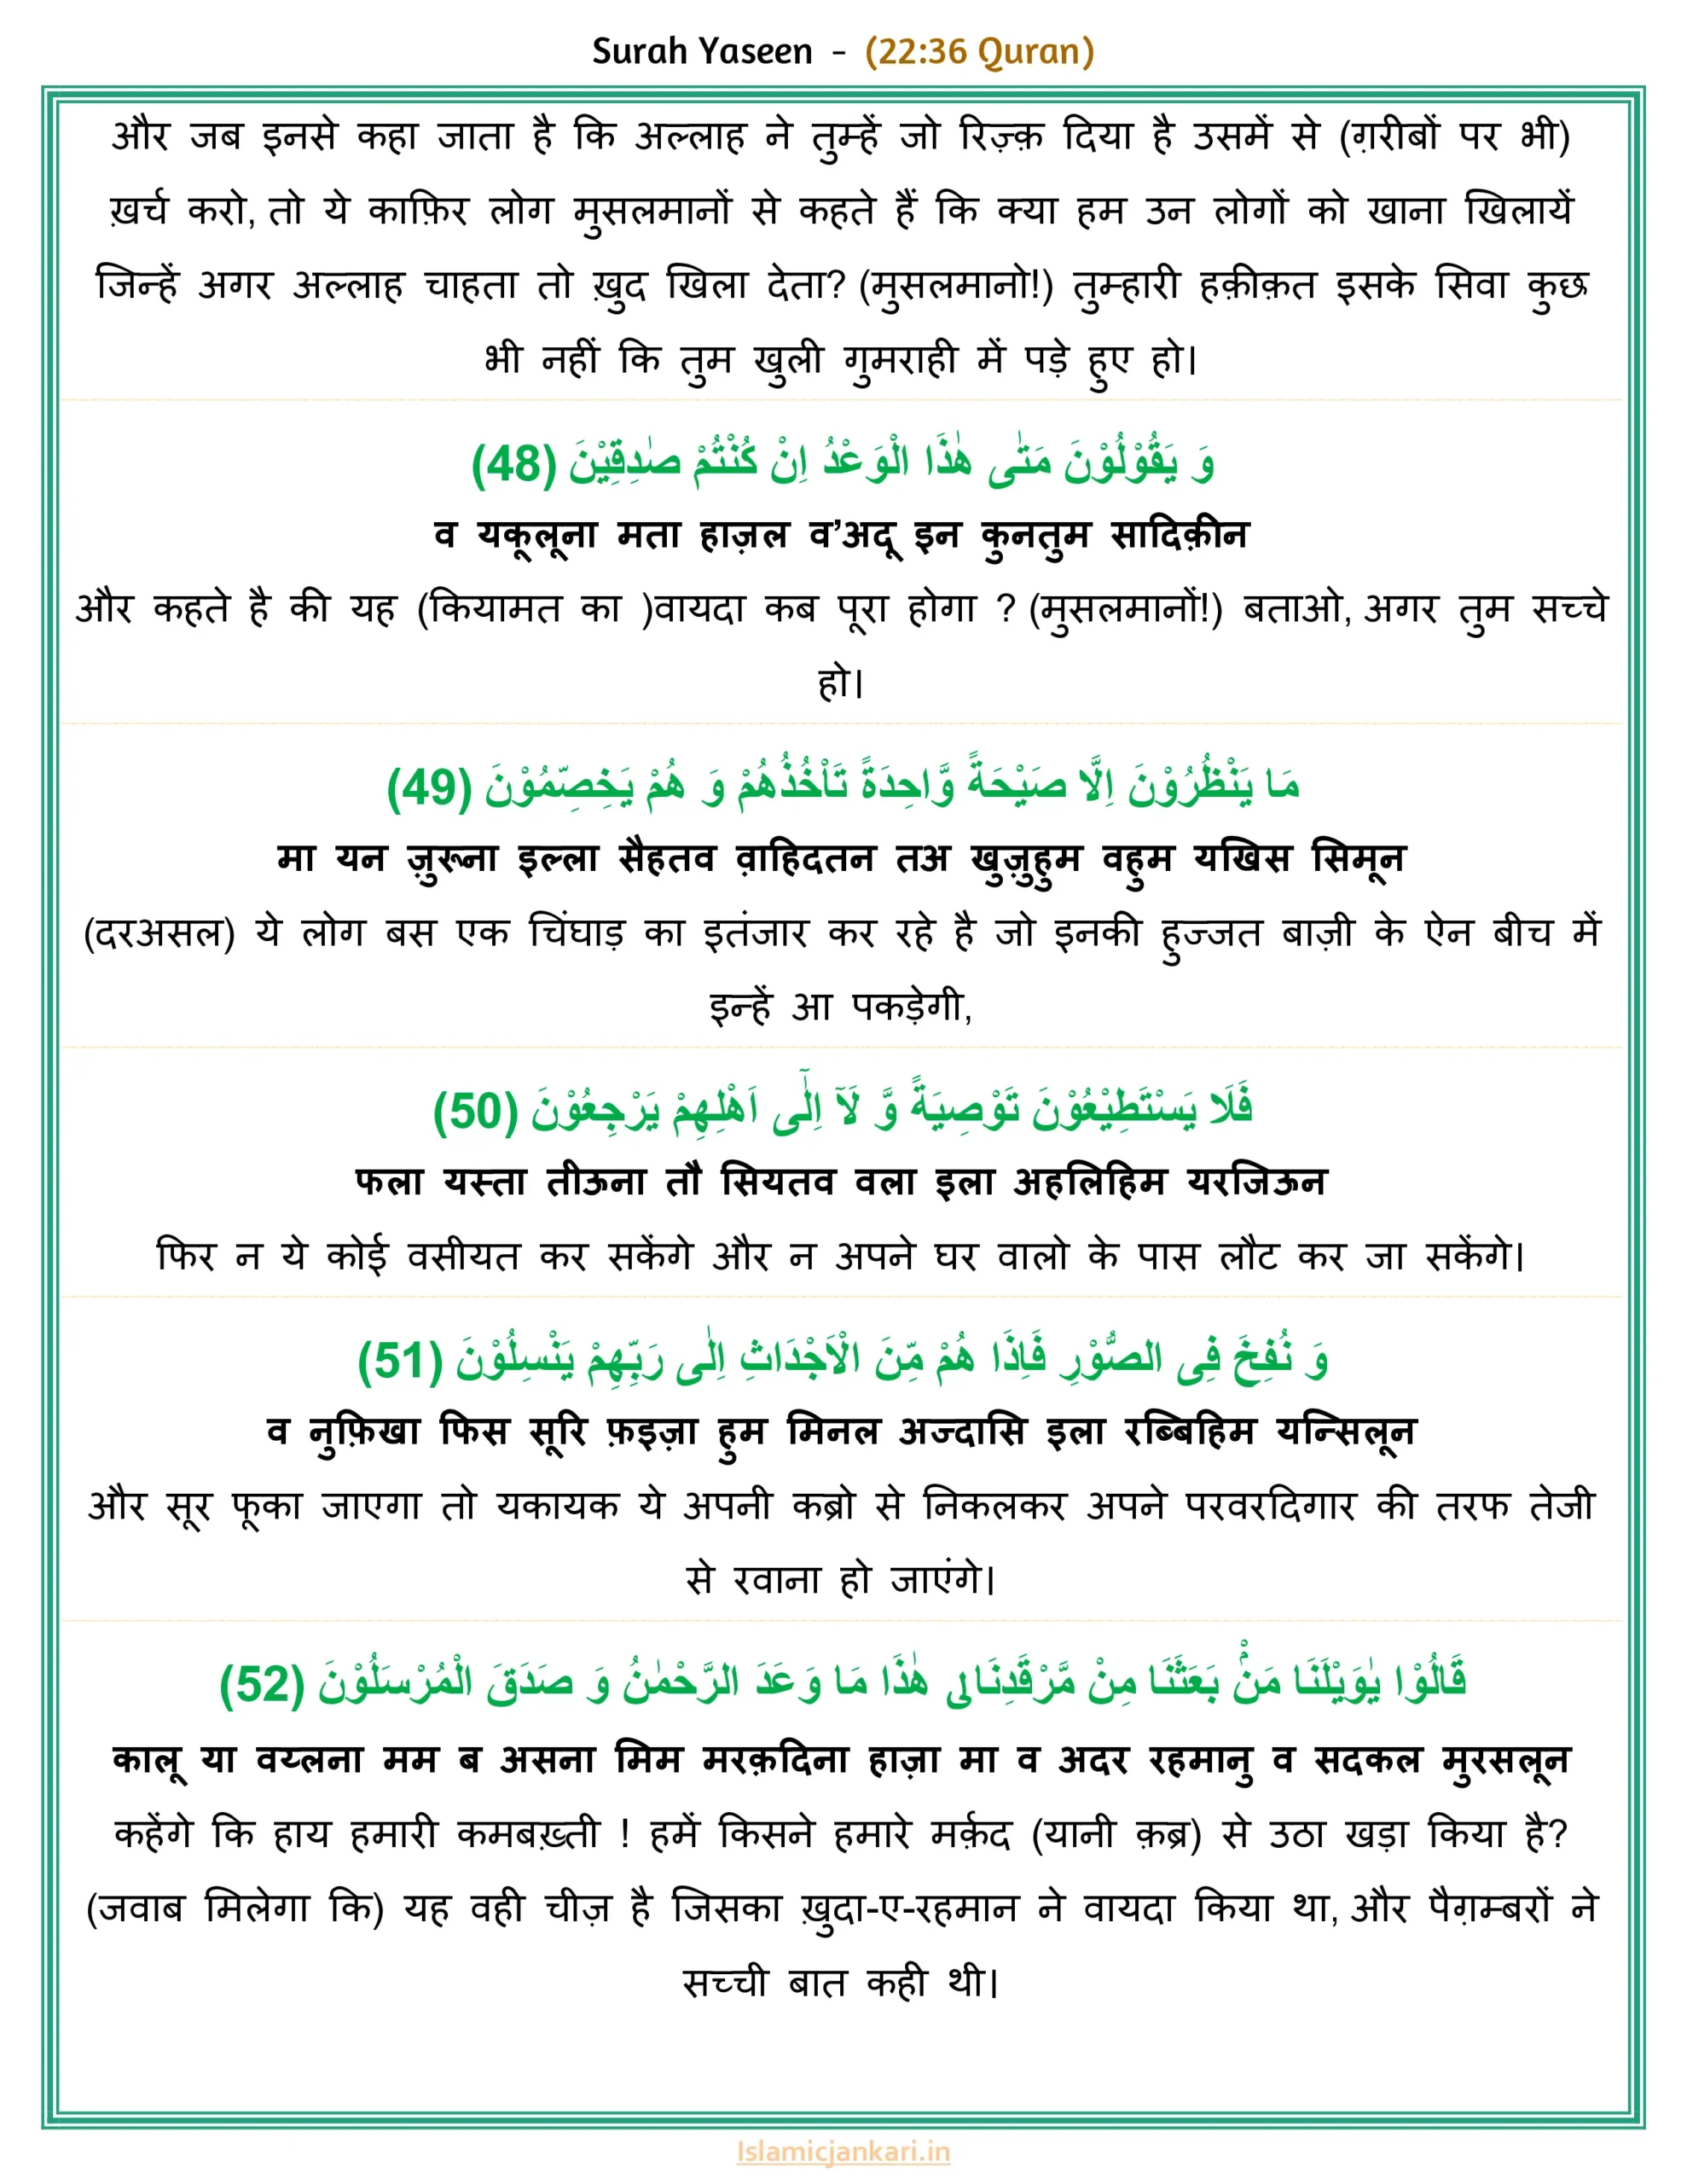 Surah Yaseen - (22:36 Quran)
और जब इनसे कहा जाता है कि अल्लाह ने तुम्हें जो रिज़्क़ दिया है उसमें से (ग़रीबों पर भी)
ख़र्च करो, तो ये काफ़िर लोग मुसलमानों से कहते हैं कि क्या हम उन लोगों को खाना खिलायें
जिन्हें अगर अल्लाह चाहता तो ख़ुद खिला देता? (मुसलमानो!) तुम्हारी हक़ीक़त इसके सिवा कुछ
भी नहीं कि तुम खुली गुमराही में पड़े हुए हो।
وَ یَقُوْلُوْنَ مَتٰى هٰذَا الْوَعْدُ اِنْ كُنْتُمْ صٰدِقِیْنَ (48)
व यकूलूना मता हाज़ल व’अदू इन कुनतुम सादिक़ीन
और कहते है की यह (कियामत का )वायदा कब पूरा होगा ? (मुसलमानों!) बताओ, अगर तुम सच्चे
हो।
مَا یَنْظُرُوْنَ اِلَّا صَیْحَةً وَّاحِدَةً تَاْخُذُهُمْ وَ هُمْ یَخِصِّمُوْنَ (49)
मा यन ज़ुरूना इल्ला सैहतव व़ाहिदतन तअ खुज़ुहुम वहुम यखिस सिमून
(दरअसल) ये लोग बस एक चिंघाड़ का इतंजार कर रहे है जो इनकी हुज्जत बाज़ी के ऐन बीच में
इन्हें आ पकड़ेगी,
فَلَا یَسْتَطِیْعُوْنَ تَوْصِیَةً وَّ لَاۤ اِلٰۤى اَهْلِهِمْ یَرْجِعُوْنَ (50)
फला यस्ता तीऊना तौ सियतव वला इला अहलिहिम यरजिऊन
फिर न ये कोई वसीयत कर सकेंगे और न अपने घर वालो के पास लौट कर जा सकेंगे।
وَ نُفِخَ فِی الصُّوْرِ فَاِذَا هُمْ مِّنَ الْاَجْدَاثِ اِلٰى رَبِّهِمْ یَنْسِلُوْنَ (51)
व नुफ़िखा फिस सूरि फ़इज़ा हुम मिनल अज्दासि इला रब्बिहिम यन्सिलून
और सूर फूका जाएगा तो यकायक ये अपनी कब्रो से निकलकर अपने परवरदिगार की तरफ तेजी
से रवाना हो जाएंगे।
قَالُوْا یٰوَیْلَنَا مَنْۢ بَعَثَنَا مِنْ مَّرْقَدِنَاﱃ هٰذَا مَا وَعَدَ الرَّحْمٰنُ وَ صَدَقَ الْمُرْسَلُوْنَ (52)
कालू या वय्लना मम ब असना मिम मरक़दिना हाज़ा मा व अदर रहमानु व सदकल मुरसलून
कहेंगे कि हाय हमारी कमबख़्ती ! हमें किसने हमारे मर्क़द (यानी क़ब्र) से उठा खड़ा किया है?
(जवाब मिलेगा कि) यह वही चीज़ है जिसका ख़ुदा-ए-रहमान ने वायदा किया था, और पैग़म्बरों ने
सच्ची बात कही थी।
Islamicjankari.in